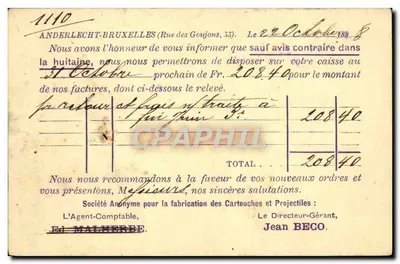 1110
ANDERLECHT-BRUXELLES (Rue des Goujons, 55). Le 22 Octobre 1898
Nous avons l'honneur de vous informer que sauf avis contraire dans
la huitaine, nous nous permettrons de disposer sur votre caisse au
31 Octobre prochain de Fr. 208.40 pour le montant
de nos factures, dont ci-dessous le relevé.
pr retour et frais n/ traite à
1er Juin 208 40
CPAPHTI
TOTAL 208 40
Nous nous recommandons à la faveur de vos nouveaux ordres et
vous présentons, Messieurs, nos sincères salutations.
Société Anonyme pour la fabrication des Cartouches et Projectiles :
L'Agent-Comptable, Le Directeur-Gérant,
Ed MALHERBE. Jean BECO.